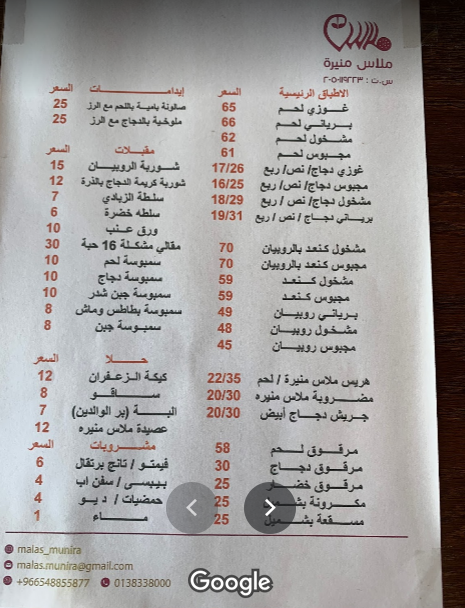 ملاس منيرة
س.ت : ٢٠٥٠١١٩٢٢٣
الاطباق الرئيسية السعر
غوزي لحم 65
برياني لحم 66
مشخول لحم 62
مجبوس لحم 61
غوزي دجاج/ نص/ ربع 17/26
مجبوس دجاج/ نص/ ربع 16/25
مشخول دجاج/ نص / ربع 18/29
برياني دجاج / نص / ربع 19/31
مشخول كنعد بالروبيان 70
مجبوس كنعد بالروبيان 70
مشخول كنعد 59
مجبوس كنعد 59
برياني روبيان 49
مشخول روبيان 48
مجبوس روبيان 45
هريس ملاس منيرة / لحم 22/35
مضروبة ملاس منيره 20/30
جريش دجاج أبيض 20/30
مرقوق لحم 58
مرقوق دجاج 30
مرقوق خضار 25
مكرونة بشميل 25
مسقعة بشميل 25
إيدامات السعر
صالونة بامية باللحم مع الرز 25
ملوخية بالدجاج مع الرز 25
مقبلات السعر
شوربة الروبيان 15
شوربة كريمة الدجاج بالذرة 12
سلطة الزبادي 7
سلطه خضرة 6
ورق عنب 10
مقالي مشكلة 16 حبة 30
سمبوسة لحم 10
سمبوسة دجاج 10
سمبوسة جبن شدر 10
سمبوسة بطاطس وماش 8
سمبوسة جبن 8
حلا السعر
كيكة الزعفران 12
ساقو 8
البثة (بر الوالدين) 7
عصيدة ملاس منيره 12
مشروبات السعر
فيمتو / تانج برتقال 6
بيبسي / سفن اب 4
حمضيات / ديو 4
ماء 1
malas_munira
malas.munira@gmail.com
+966548855877 0138338000
Google